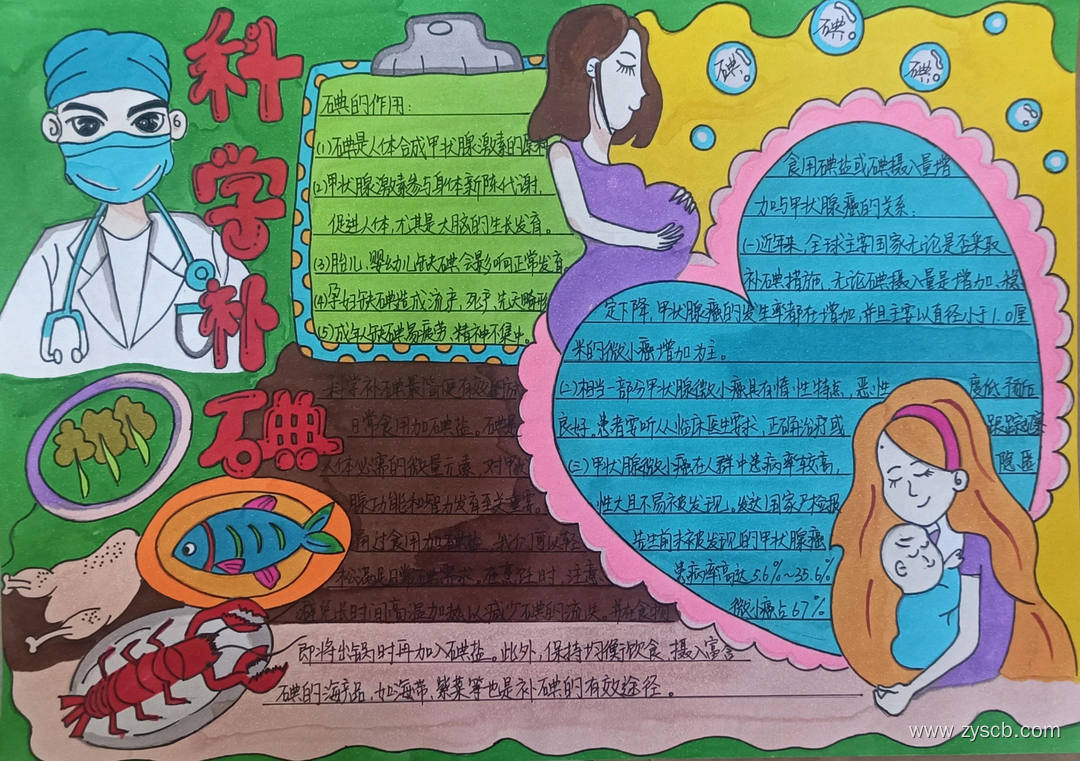 科学补碘
碘的作用：
(1)碘是人体合成甲状腺激素的原料
(2)甲状腺激素参与身体新陈代谢，
促进人体，尤其是大脑的生长发育。
(3)胎儿、婴幼儿缺碘会影响正常发育，
(4)孕妇缺碘造成流产，死产，先天畸形
(5)成年人缺碘易疲劳、精神不集中。
碘
碘
碘
食用碘盐或碘摄入量增
加与甲状腺癌的关系：
(一)近年来，全球主要国家无论是否采取
补碘措施，无论碘摄入量是增加、稳
定下降，甲状腺癌的发生率都在增加，并且主要以直径小于1.0厘
米的微小癌增加为主。
(二)相当一部分甲状腺微小癌具有惰性特点，恶性 度低预后
良好，患者要听从临床医生要求，正确治疗或 跟踪观察
(三)甲状腺微小癌在人群中患病率较高， 隐匿
性大且不易被发现。发达国家尸检报
先生前未被发现的甲状腺癌
患病率高达5.6%~35.6%
微小癌占67%
科学补碘最简便有效的
日常食用加碘盐。碘
人体必需的微量元素，对甲状
腺功能和智力发育至关重要。
通过食用加碘盐，我们可以轻
松满足日常需求，在烹饪时，注意
避免长时间高温加热以减少碘的流失，并在食物
即将出锅时再加入碘盐。此外，保持均衡饮食，摄入富含
碘的海产品，如海带、紫菜等也是补碘的有效途径。
www.zyscb.com